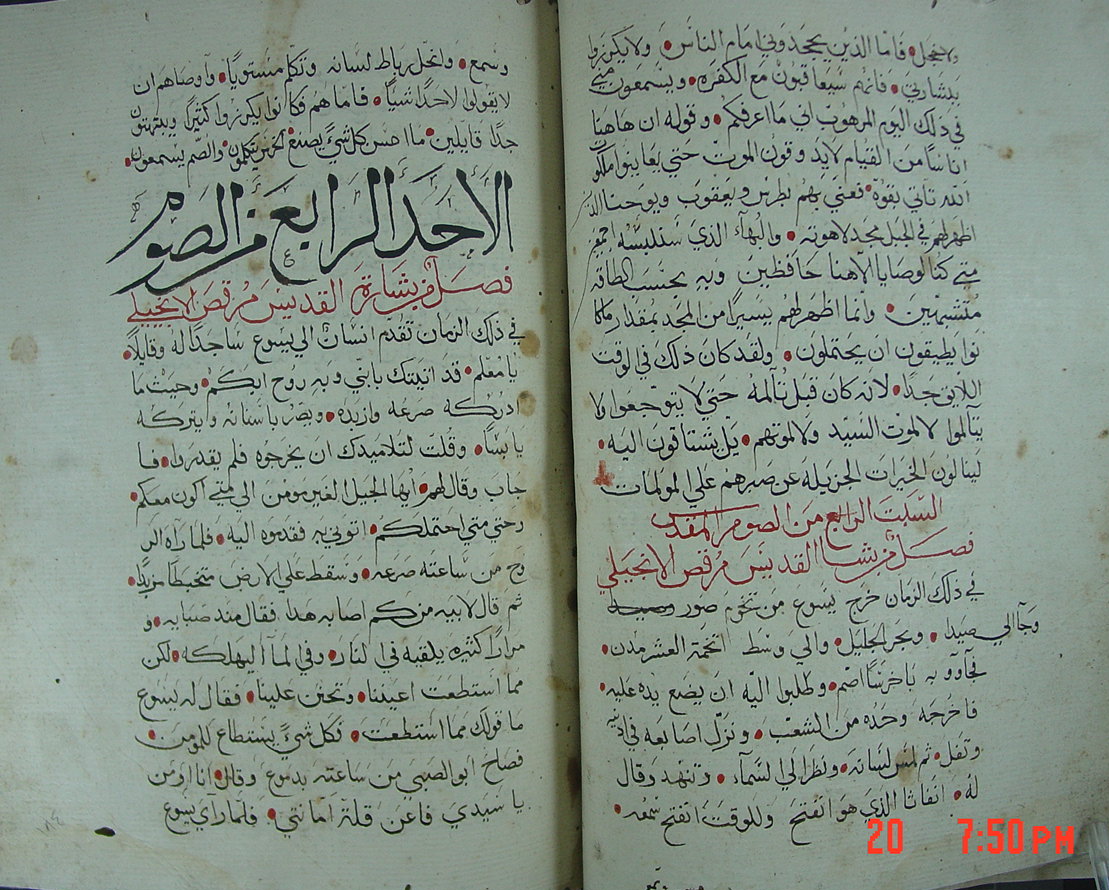 ولا يخجل• فاما الذين يجحدوني امام الناس• ولا يكرزوا
ببشارتي• فانهم سيعاقبون مع الكفره• ويسمعون مني
في ذلك اليوم المرهوب اني ما اعرفكم• وقوله ان هاهنا
اناسًا من القيام لا يذوقون الموت حتي يعاينوا ملكوت
الله تاتي بقوة• فعني بهم بطرس ويعقوب ويوحنا الذ
اظهر لهم في الجبل مجد لاهوته• والبهاء الذي سنلبسه اجمع
متي كنا لوصايا الاهنا حافظين وبه بحسب الطاقه
متشبهين• وانما اظهر لهم يسيرًا من المجد بمقدار ما كا
نوا يطيقون ان يحتملون• ولقد كان ذلك في الوقت
اللايق جدًا• لانه كان قبل تالمه حتي لا يتوجعوا ولا
يتالموا لا لموت السيد ولا لموتهم• بل يشتاقون اليه•
لينالون الخيرات الجزيله عن صبرهم علي المولمات
السبت الرابع من الصوم المقدس
فصل من بشارة القديس مرقص الانجيلي
في ذلك الزمان خرج يسوع من تخوم صور
وجا الي صيدا• وبحر الجليل• والي وسط تخمة العشر مدن•
فجاووه به باخرسًا اصم• وطلبوا اليه ان يضع يده عليه•
فاخرجه وحده من الشعب• ونزل اصابعه في اذنيه
وتفل• ثم لمس لسانه• ونظر الي السماء• وتنهد وقال
له• انفاتا الذي هو انفتح وللوقت انفتح سمعه•
وسمع• وانحل رباط لسانه وتكلم مستويًا• واوصاهم ان
لا يقولوا لاحدًا شيًا• فاما هم فكانوا يكرزوا كثيرًا ويبهتون
جدًا قايلين• ما احسن كل شيً يصنع الخرس يتكلمون والصم يسمعون•
الاحد الرابع من الصوم
فصل من بشارة القديس مرقص الانجيلي
في ذلك الزمان تقدم انسان الي يسوع ساجدًا له وقايلاً•
يا معلم• قد اتيتك بابني وبه روح ابكم• وحيث ما
ادركه صرعه وازبده• ويصر باسنانه ويتركه
يابسًا• وقلت لتلاميدك ان يخرجوه فلم يقدروا• فا
جاب وقال لهم• ايها الجيل الغير مومن الي متي اكون معكم•
وحتي متي احتملكم• اتوني به فقدموه اليه• فلما راه الر
وح من ساعته صرعه• وسقط علي الارض متخبطًا مزبدًا•
ثم قال لابيه من كم اصابه هدا• فقال مند صبايه• و
مرارًا كثيره يلقيه في النار• وفي الماء ليهلكه• لكن
مما استطعت اعيننا• وتحنن علينا• فقال له يسوع
ما قولك مما استطعت• فكل شيً يستطاع للمومن•
فصاح ابو الصبي من ساعته بدموع وقال• انا اومن
يا سيدي فاعن قلة امانتي• فلما راي يسوع
20 7:50 PM